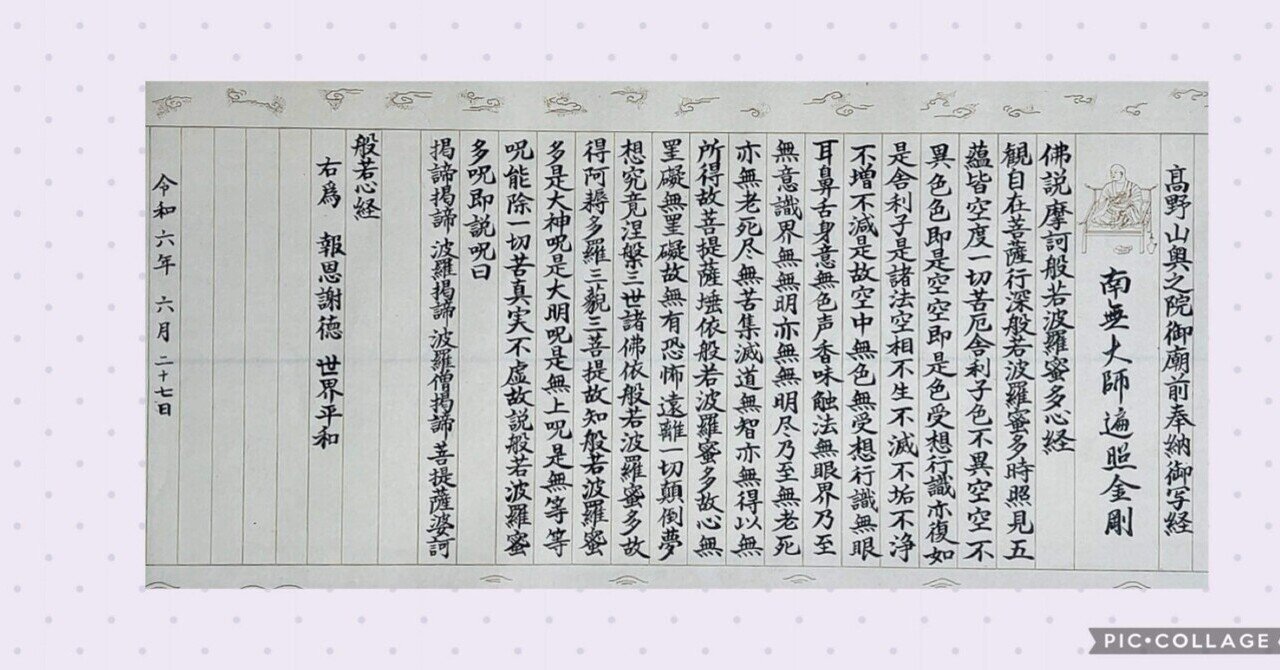 高野山奥之院御廟前奉納御写経
南無大師遍照金剛
佛説摩訶般若波羅蜜多心経
観自在菩薩行深般若波羅蜜多時照見五
蘊皆空度一切苦厄舎利子色不異空空不
異色色即是空空即是色受想行識亦復如
是舎利子是諸法空相不生不滅不垢不浄
不増不減是故空中無色無受想行識無眼
耳鼻舌身意無色声香味触法無眼界乃至
無意識界無無明亦無無明尽乃至無老死
亦無老死尽無苦集滅道無智亦無得以無
所得故菩提薩埵依般若波羅蜜多故心無
罣礙無罣礙故無有恐怖遠離一切顛倒夢
想究竟涅槃三世諸佛依般若波羅蜜多故
得阿耨多羅三藐三菩提故知般若波羅蜜
多是大神呪是大明呪是無上呪是無等等
呪能除一切苦真実不虚故説般若波羅蜜
多呪即説呪曰
掲諦掲諦 波羅掲諦 波羅僧掲諦 菩提薩婆訶
般若心経
右為 報恩謝徳 世界平和
令和 六年 六月 二十七日
PIC•COLLAGE